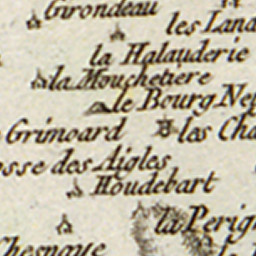 Girondeau
les Lan
la Halauderie
la Mouchetiere
le Bourg Ne
Grimoard
les Cha
osse des Aigles
Houdebart
la Perig
Chesnaye